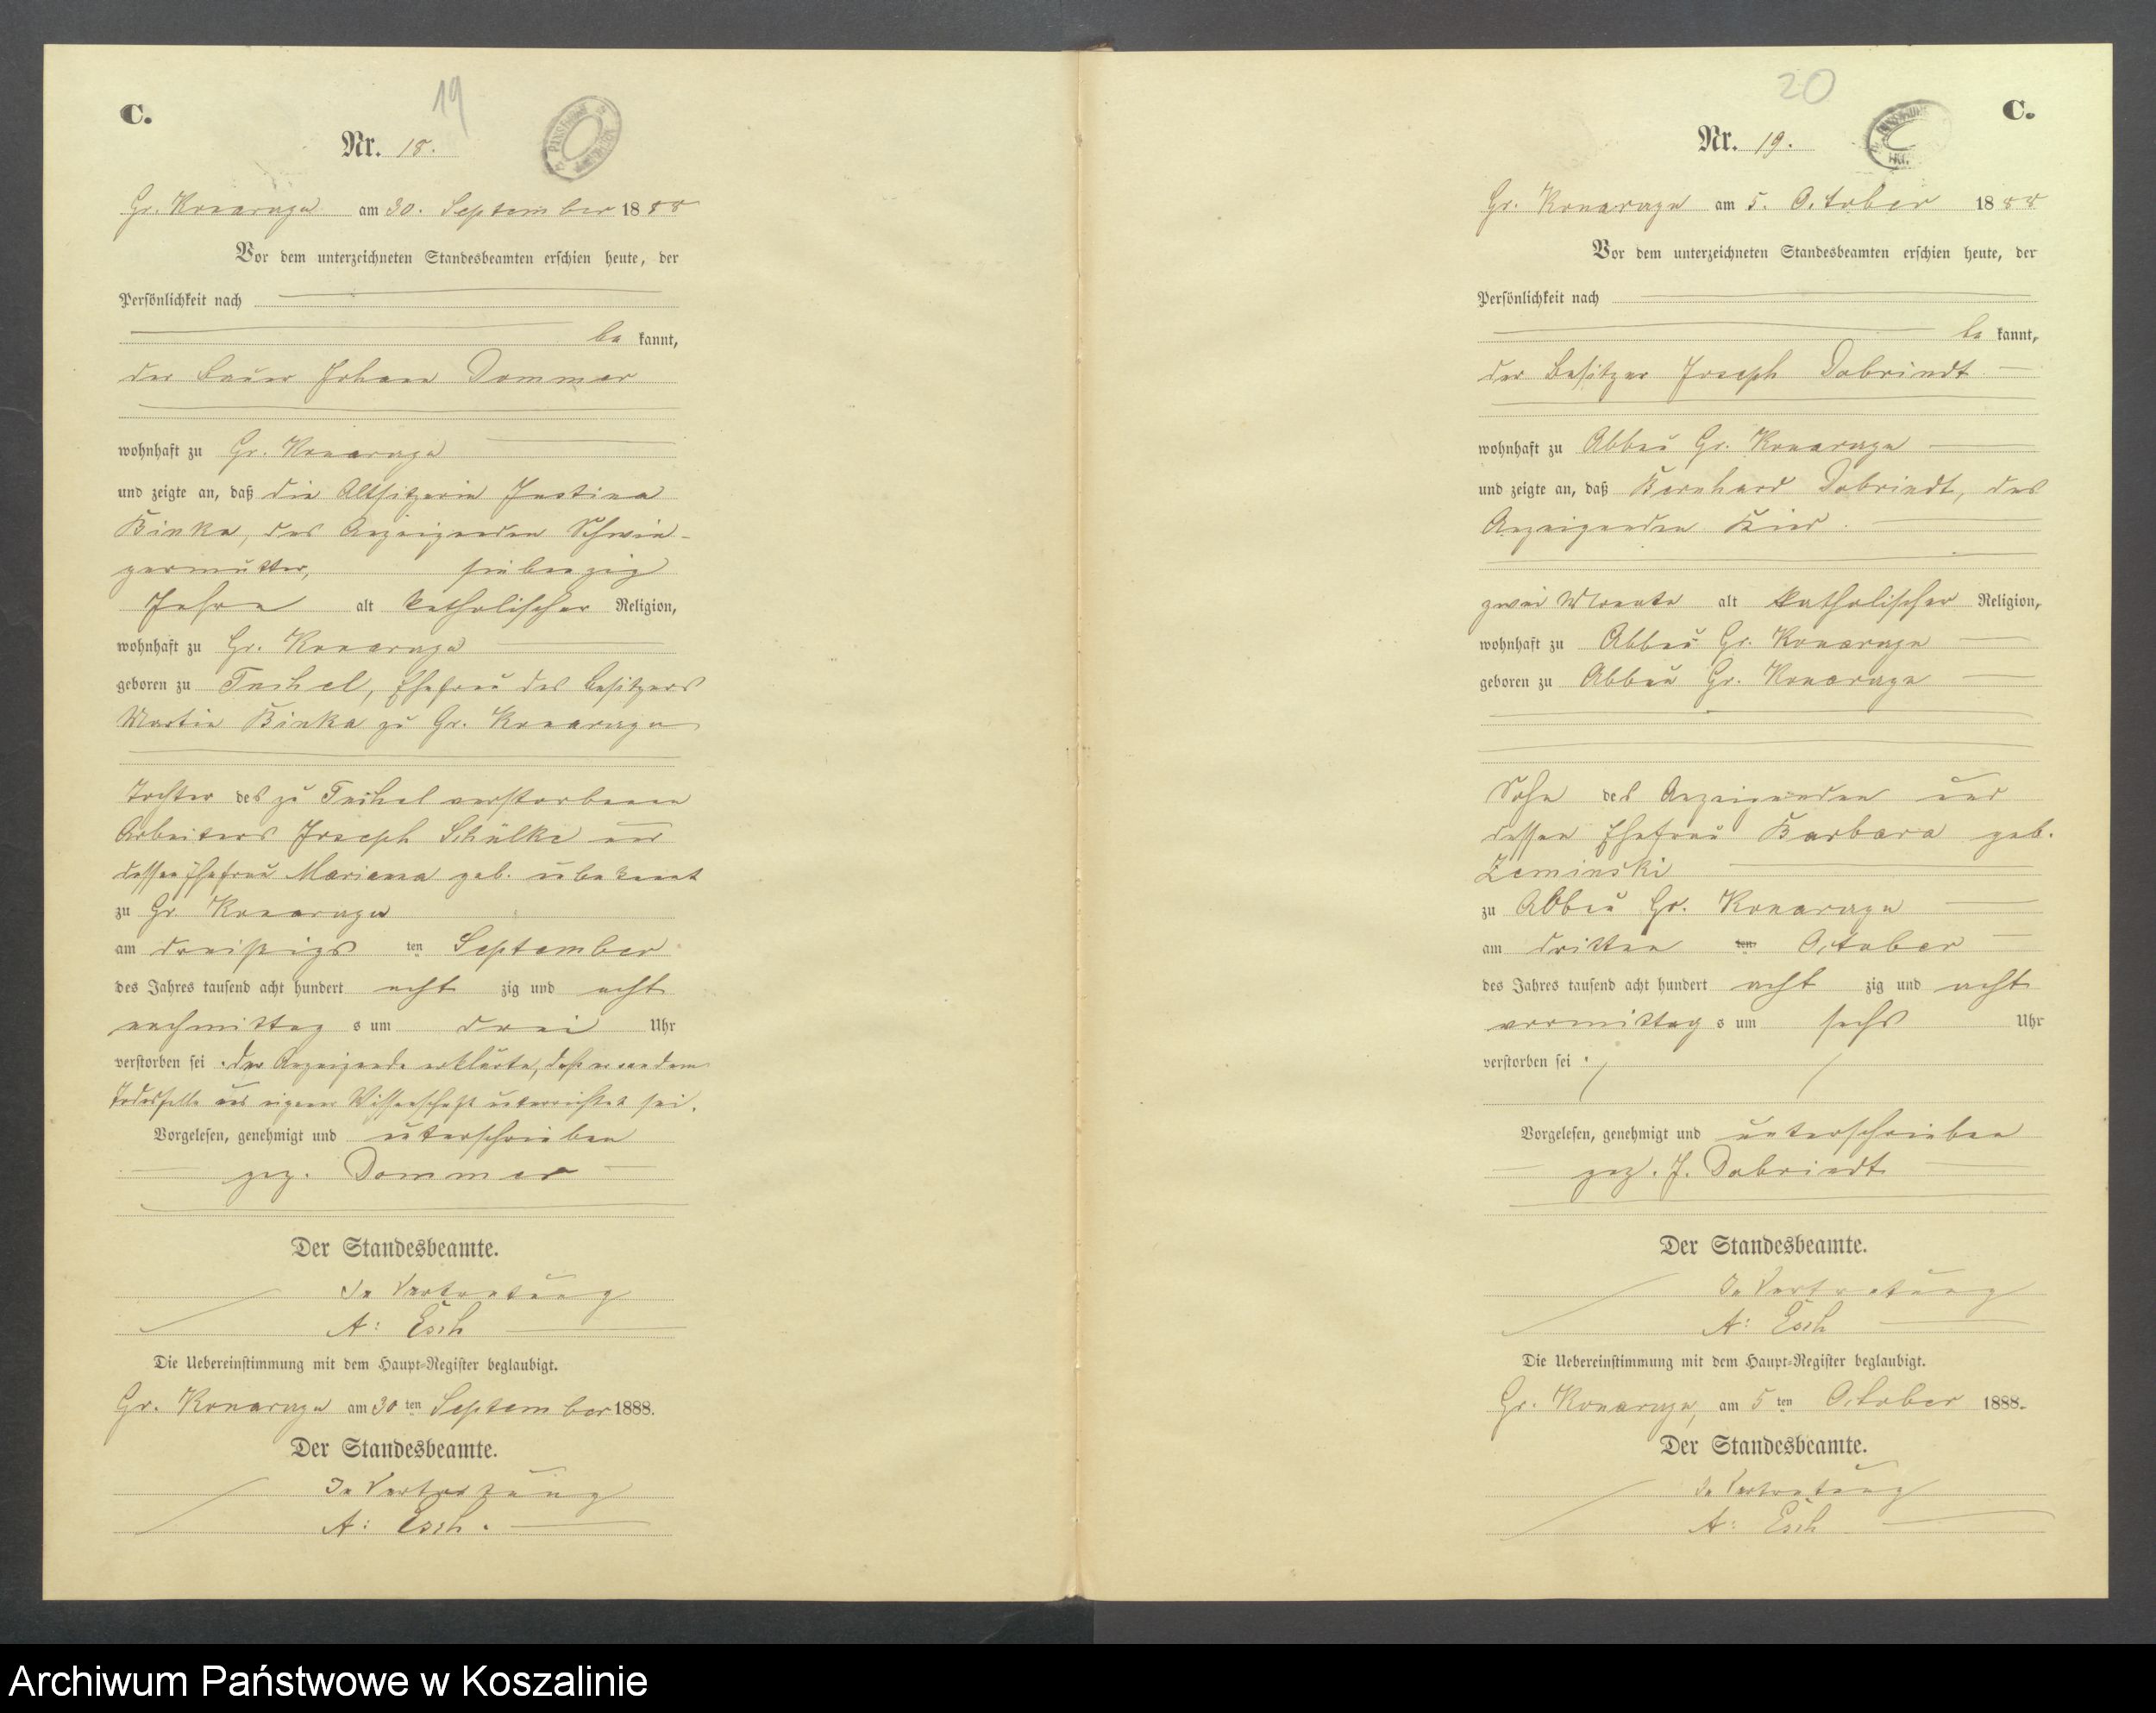 C.
19
Nr. 18.
Gr. Konarzyn am 30. September 1888
Vor dem unterzeichneten Standesbeamten erschien heute, der
Persönlichkeit nach
be kannt,
der Bauer Johann Dommer
wohnhaft zu Gr. Konarzyn
und zeigte an, daß die Altsitzerin Justina
Binka, des Anzeigenden Schwie-
germutter, siebenzig
Jahre alt katholischer Religion,
wohnhaft zu Gr. Konarzyn
geboren zu Tuchel, Ehefrau des Besitzers
Martin Binka zu Gr. Konarzyn
Tochter des zu Tuchel verstorbenen
Arbeiters Joseph Schülke und
dessen Ehefrau Marianna geb. unbekannt
zu Gr. Konarzyn
am dreißigs ten September
des Jahres tausend acht hundert acht zig und acht
nachmittag s um drei Uhr
verstorben sei. der Anzeigende erklärte, daß er von dem
Todesfalle aus eigener Wissenschaft unterrichtet sei.
Vorgelesen, genehmigt und unterschrieben
gez. Dommer
Der Standesbeamte.
In Vertretung
A: Esch
Die Uebereinstimmung mit dem Haupt-Register beglaubigt.
Gr. Konarzyn am 30 ten September 1888.
Der Standesbeamte.
In Vertretung
A: Esch.
20
C.
Nr. 19.
Gr. Konarzyn am 5. October 1888
Vor dem unterzeichneten Standesbeamten erschien heute, der
Persönlichkeit nach
be kannt,
der Besitzer Joseph Dobrindt
wohnhaft zu Abbau Gr. Konarzyn
und zeigte an, daß Bernhard Dobrindt, des
Anzeigenden Kind.
zwei Monate alt katholischer Religion,
wohnhaft zu Abbau Gr. Konarzyn
geboren zu Abbau Gr. Konarzyn
Sohn des Anzeigenden und
dessen Ehefrau Barbara geb.
Zeminski
zu Abbau Gr. Konarzyn
am dritten ten October
des Jahres tausend acht hundert acht zig und acht
vormittag s um sechs Uhr
verstorben sei.
Vorgelesen, genehmigt und unterschrieben
gez. J. Dobrindt
Der Standesbeamte.
In Vertretung
A: Esch
Die Uebereinstimmung mit dem Haupt-Register beglaubigt.
Gr. Konarzyn, am 5 ten October 1888.
Der Standesbeamte.
In Vertretung
A: Esch
Archiwum Państwowe w Koszalinie